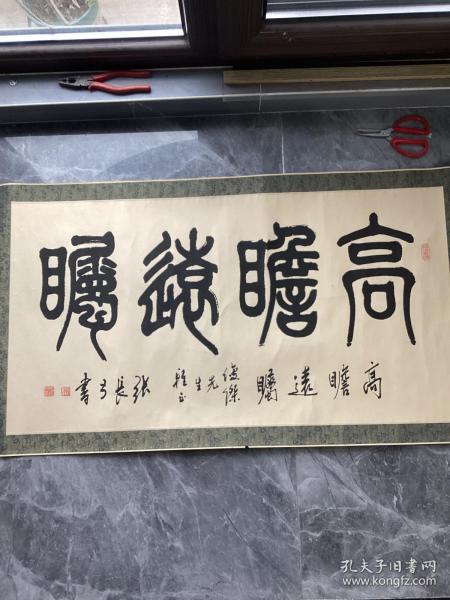 高瞻遠矚
高瞻遠矚
俊傑
先生
雅正
張長弓書
孔夫子旧书网
www.kongfz.com